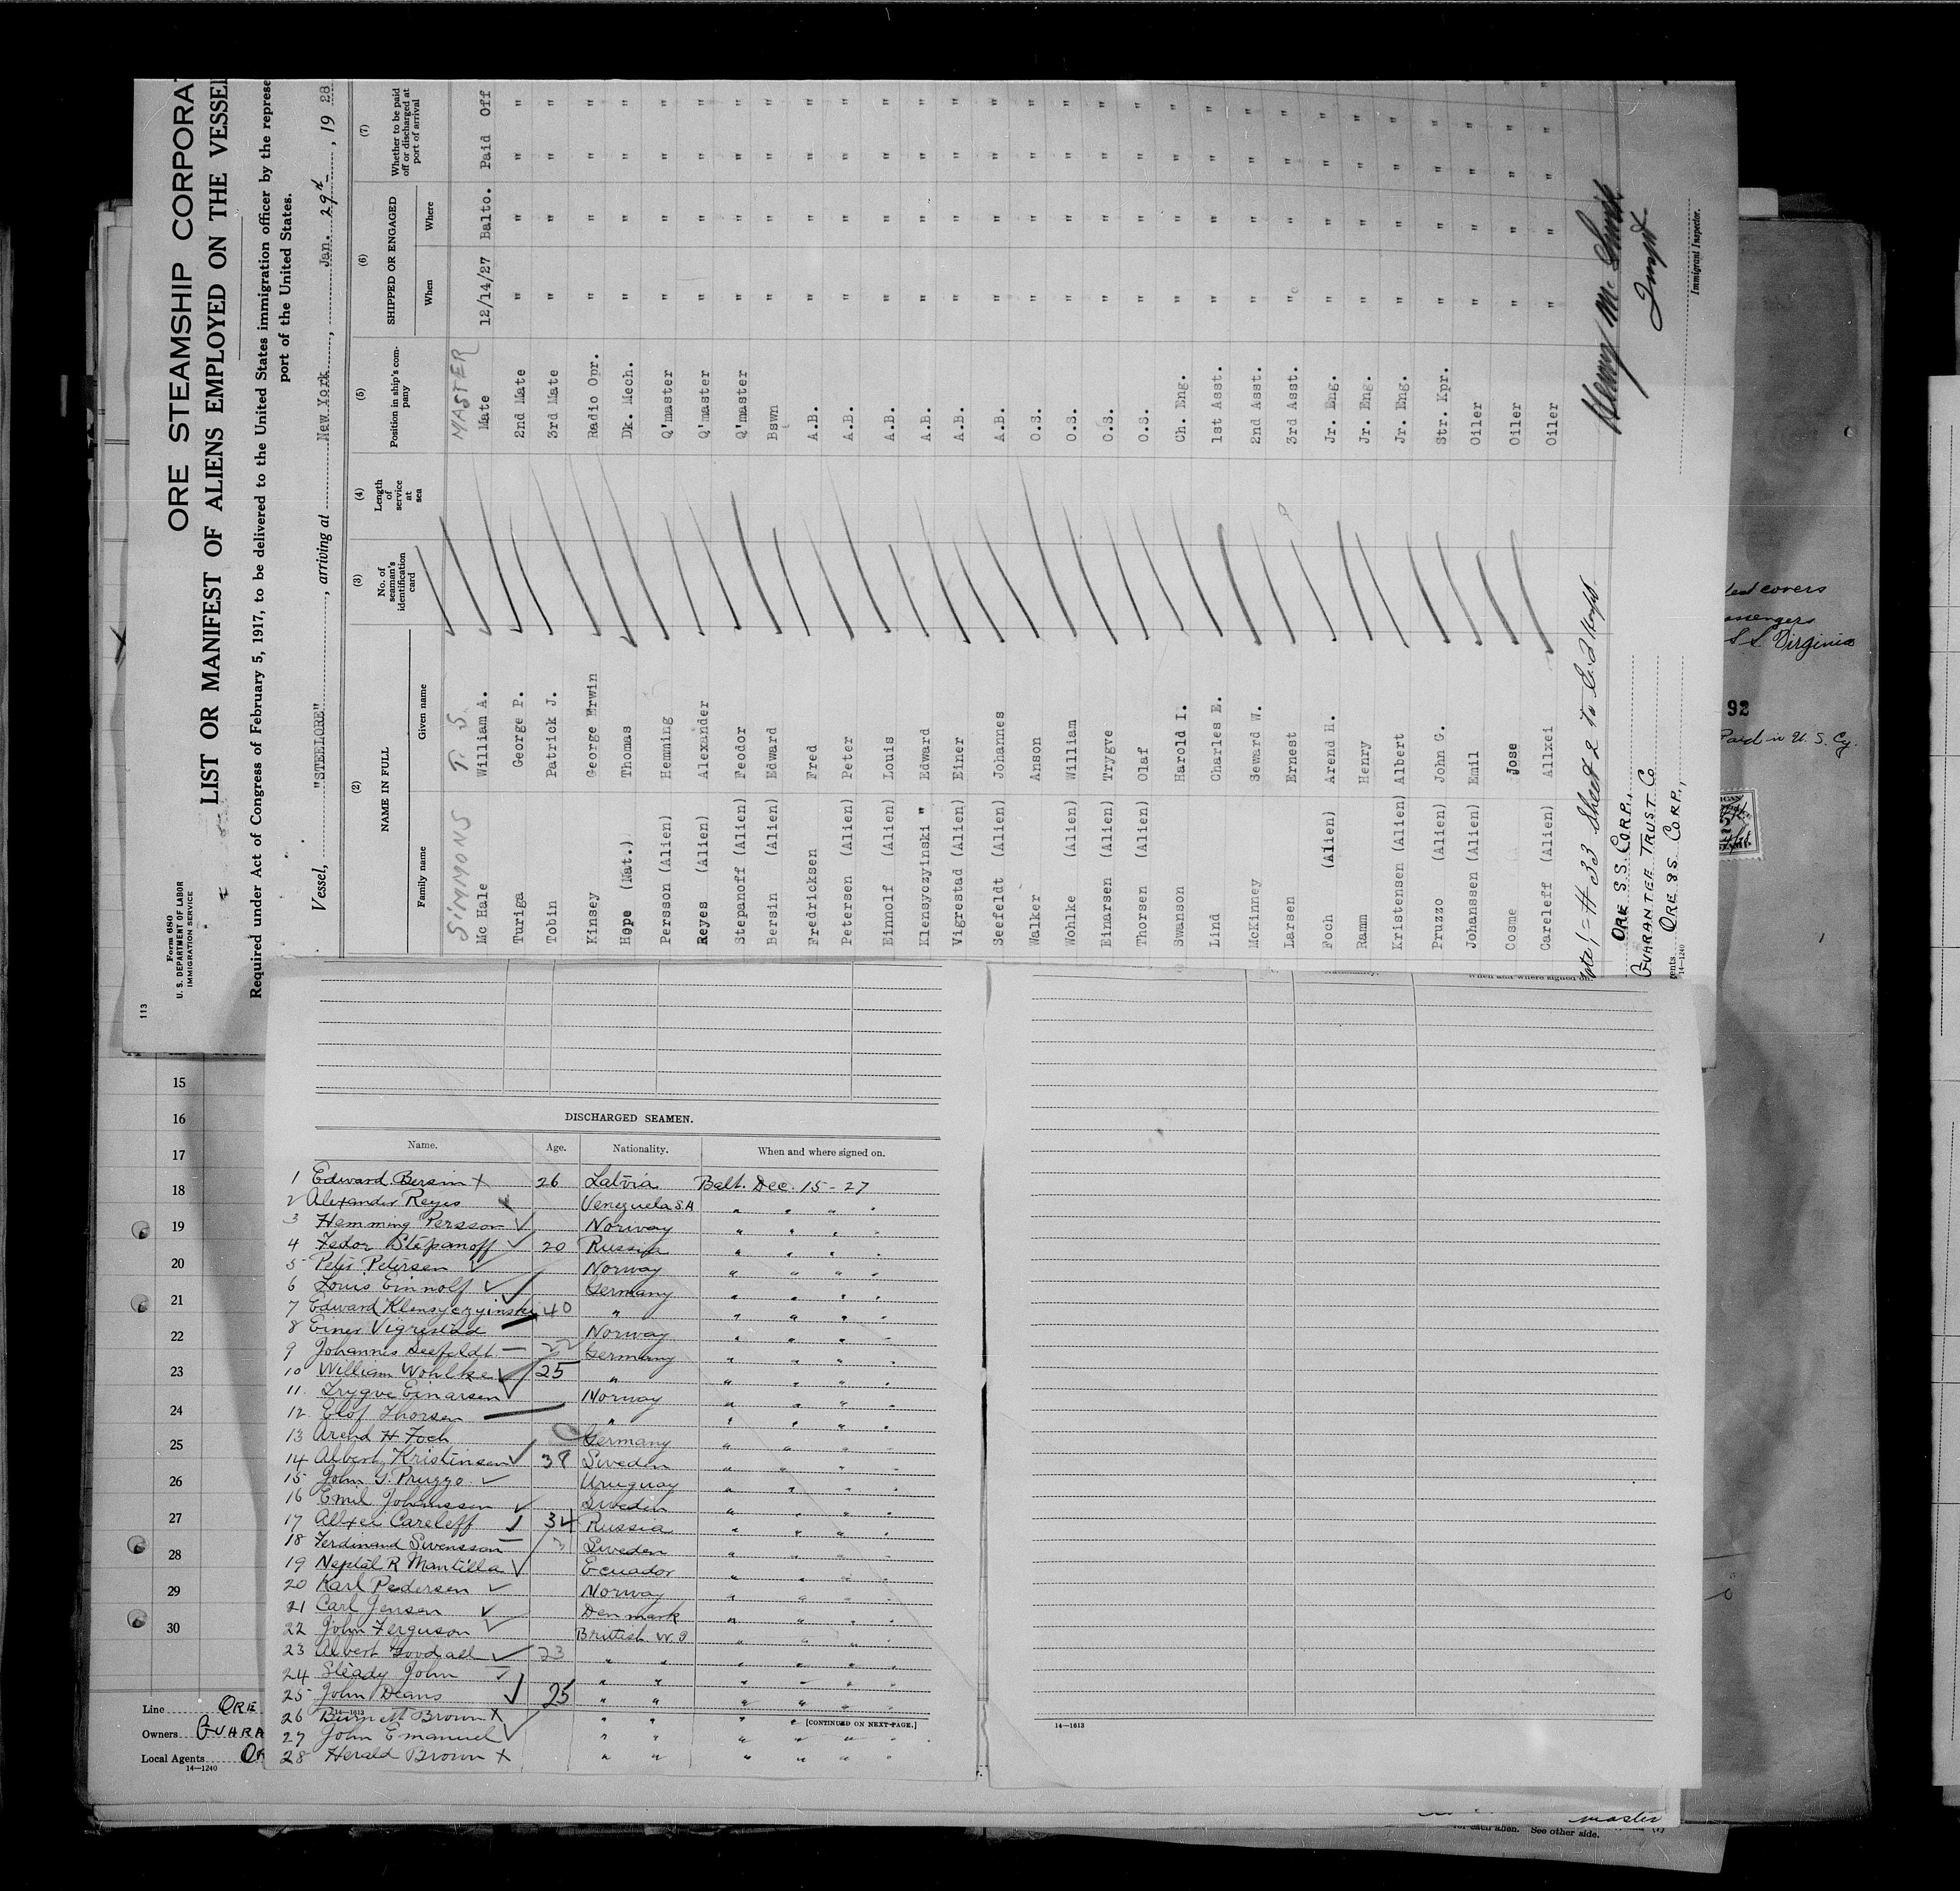 113
Form 680
U. S. DEPARTMENT OF LABOR
IMMIGRATION SERVICE
ORE STEAMSHIP CORPORA
LIST OR MANIFEST OF ALIENS EMPLOYED ON THE VESSEL
Required under Act of Congress of February 5, 1917, to be delivered to the United States immigration officer by the represe
port of the United States.
Vessel, "STEELORE", arriving at New York, Jan. 29th, 19 28
(2) (3) (4) (5) (6) (7)
NAME IN FULL
Family name Given name
No. of seaman's identification card
Length of service at sea
Position in ship's company
SHIPPED OR ENGAGED
When Where
Whether to be paid off or discharged at port of arrival
SIMMONS T. S. MASTER
Mc Hale William A. Mate 12/14/27 Balto. Paid Off
Turiga George P. 2nd Mate " " " "
Tobin Patrick J. 3rd Mate " " " "
Kinsey George Erwin Radio Opr. " " " "
Hope (Nat.) Thomas Dk. Mech. " " " "
Persson (Alien) Hemming Q'master " " " "
Reyes (Alien) Alexander Q'master " " " "
Stepanoff (Alien) Feodor Q'master " " " "
Bersin (Alien) Edward Bswn " " " "
Fredricksen Fred A.B. " " " "
Petersen (Alien) Peter A.B. " " " "
Einnolf (Alien) Louis A.B. " " " "
Klensyczyinski " Edward A.B. " " " "
Vigrestad (Alien) Einer A.B. " " " "
Seefeldt (Alien) Johannes A.B. " " " "
Walker Anson O.S. " " " "
Wohlke (Alien) William O.S. " " " "
Einarsen (Alien) Trygve O.S. " " " "
Thorsen (Alien) Olaf O.S. " " " "
Swanson Harold I. Ch. Eng. " " " "
Lind Charles E. 1st Asst. " " " "
McKinney Seward W. 2nd Asst. " " " "
Larsen Ernest 3rd Asst. " " " "
Foch (Alien) Arend H. Jr. Eng. " " " "
Ramm Henry Jr. Eng. " " " "
Kristensen (Alien) Albert Jr. Eng. " " " "
Pruzzo (Alien) John G. Str. Kpr. " " " "
Johanssen (Alien) Emil Oiler " " " "
Cosme Jose Oiler " " " "
Careleff (Alien) Allxei Oiler " " " "
# 33 Sheet 2 to
Henry M.
ORE S S. CORP.,
GUARANTEE TRUST CO
ORE SS CORP.,
14—1240
Immigrant Inspector.
covers
S S. Virginia
92
Paid in U. S. Cy.
15
16
17
18
19
20
21
22
23
24
25
26
27
28
29
30
Line ORE
Owners GUARA
Local Agents OR
14—1240
DISCHARGED SEAMEN.
Name. Age. Nationality. When and where signed on.
1 Edward Bersin X 26 Latvia Balt. Dec. 15-27
2 Alexander Reyes Venezuela S.A " " " "
3 Hemming Persson Norway " " " "
4 Fedor Stepanoff 20 Russia " " " "
5 Peter Petersen Norway " " " "
6 Louis Einnolf Germany " " " "
7 Edward Klensyczyinski 40 " " " " "
8 Einer Vigrestad Norway " " " "
9 Johannes Seefeldt 22 Germany " " " "
10 William Wohlke 25 " " " " "
11 Trygve Einarsen Norway " " " "
12 Elof Thorsen " " " " "
13 Arend H Foch Germany " " " "
14 Albert Kristinsen 38 Sweden " " " "
15 John G. Pruzzo Uruguay " " " "
16 Emil Johanssen Sweden " " " "
17 Allxei Careleff 34 Russia " " " "
18 Ferdinand Swensson Sweden " " " "
19 Neptal R Mantilla Ecuador " " " "
20 Karl Pedersen Norway " " " "
21 Carl Jensen Denmark " " " "
22 John Ferguson British W. I " " " "
23 Albert Goodall 23 " " " " " "
24 Steady John " " " " " "
25 John Deans 25 " " " " " "
26 Burnett Brown X " " " "
14—1613
[CONTINUED ON NEXT PAGE.]
27 John Emanuel " " " " " "
28 Herald Brown X " " " " " "
When and where signed on.
14—1613
master
for each alien. See other side.